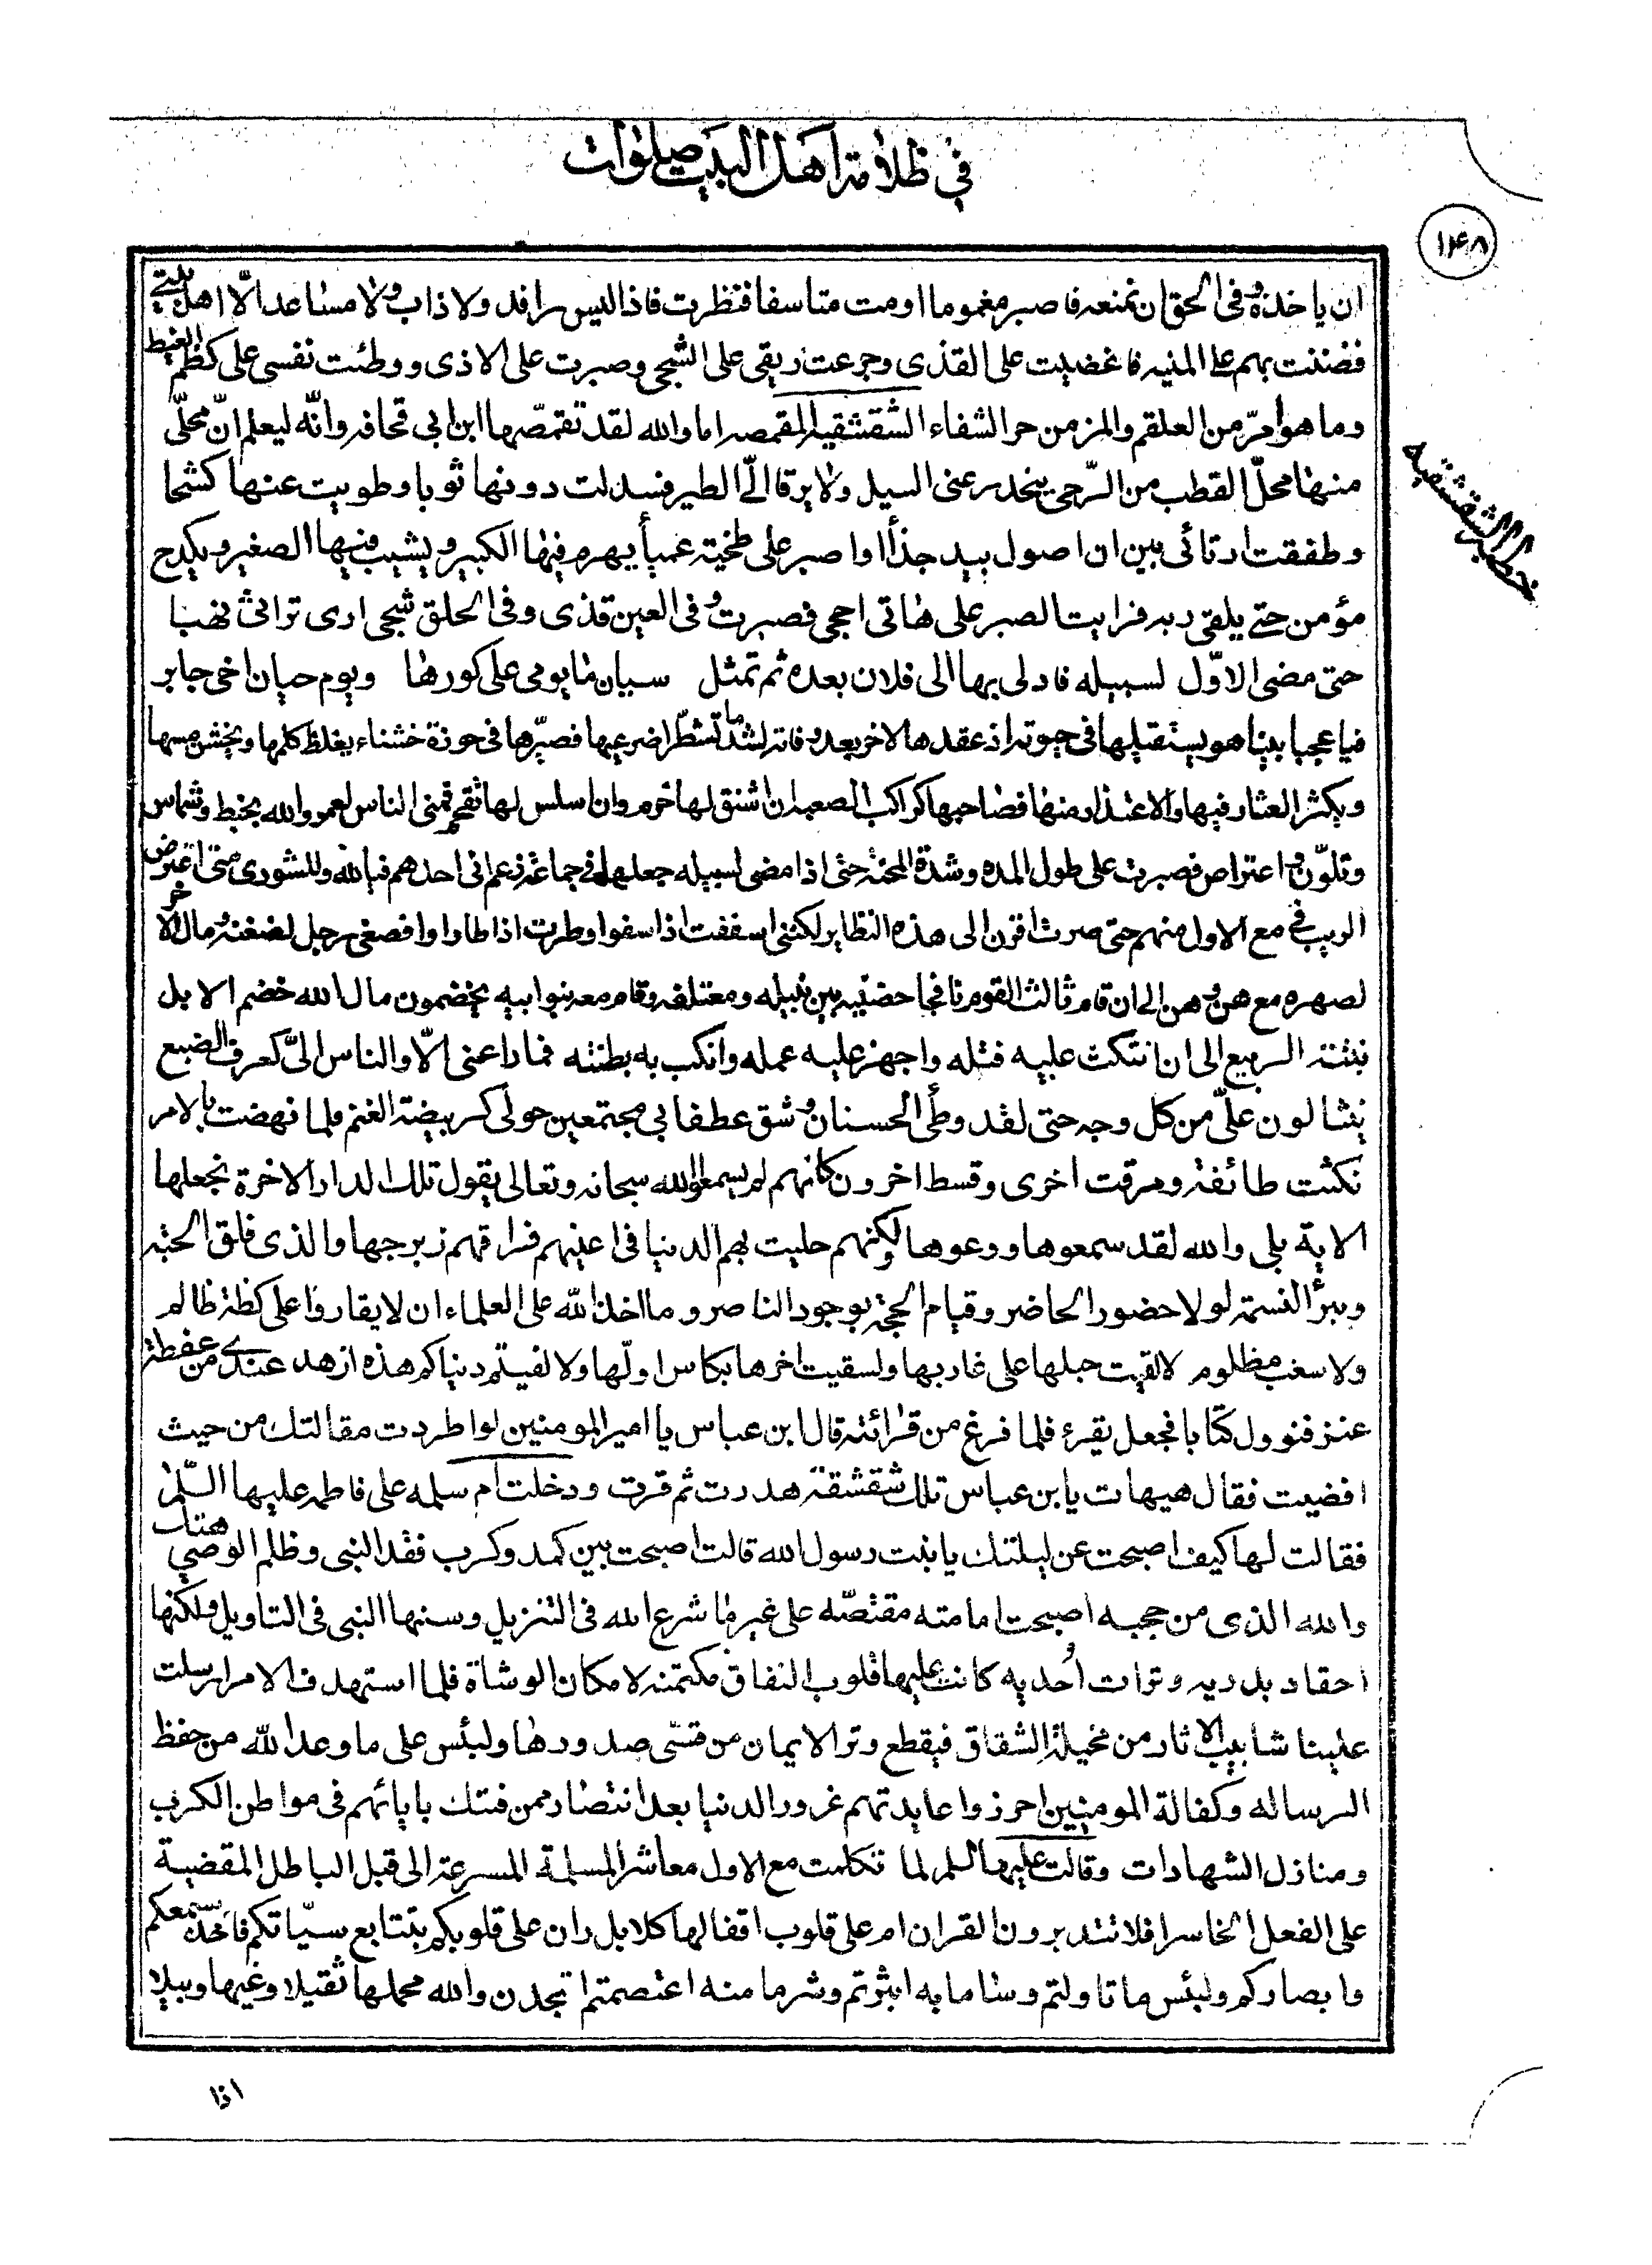 في ظلامة اهل البيت صلوات
١٤٨
ان ياخذه وفى الحق ان تمنعه فاصبر مغموما اومت متاسفا فنظرت فاذا ليس رافد ولا ذاب ولا مساعد الّا اهل بيتي
فضننت بهم على المنيه فاغضيت على القذى وجرعت ريقى على الشجى وصبرت على الاذى ووطئت نفسى على كظم الغيظ
وما هو امرّ من العلقم والمز من حر الشفاء الشقشقيه المقمصه اما والله لقد تقمّصها ابن ابي قحافه وانّه ليعلم انّ محلّى
منها محلّ القطب من الرّحى ينحدر عنى السيل ولا يرقا الىّ الطير فسدلت دونها ثوبا وطويت عنها كشحا
وطفقت ارتائى بين ان اصول بيد جذأ او اصبر على طخية عميأ يهرم فيها الكبير ويشيب فيها الصغير ويكدح
مؤمن حتى يلقى ربه فرايت الصبر على هاتى احجى فصبرت وفى العين قذى وفى الحلق شجى ارى تراثى نهبا
حتى مضى الاوّل لسبيله فادلى بها الى فلان بعده ثم تمثل سيان ما يومى على كورها ويوم حيان اخى جابر
فيا عجبا بينا هو يستقيلها فى حيوته اذ عقدها لاخر بعد وفاته لشد ما تشطّرا ضرعيها فصيّرها فى حوزة خشناء يغلظ كلمها ويخشن مسها
ويكثر العثار فيها والاعتذار منها فصاحبها كراكب الصعبه ان اشنق لها خرم وان اسلس لها تقحم فمنى الناس لعمر والله بخبط وشماس
وتلوّن واعتراض فصبرت على طول المده وشدة المحنة حتى اذا مضى لسبيله جعلها فى جماعة زعم انى احدهم فيالله وللشورى متى اعترض
الريب فى مع الاول منهم حتى صرت اقرن الى هذه النظاير لكننى اسففت اذ اسفوا وطرت اذا طاروا فصغى رجل لضغنه ومال الاخر
لصهره مع هن وهن الى ان قام ثالث القوم نافجا حضنيه بين نثيله ومعتلفه وقام معه بنوابيه يخضمون مال الله خضم الابل
نبتة الربيع الى ان انتكث عليه فتله واجهز عليه عمله وانكب به بطنته فما راعنى الّا والناس الىّ كعرف الضبع
ينثالون علىّ من كل وجه حتى لقد وطأ الحسنان وشق عطفا بي مجتمعين حولى كربيضة الغنم فلما نهضت بالامر
نكثت طائفة ومرقت اخرى وقسط اخرون كانهم لم يسمعوا الله سبحانه وتعالى يقول تلك الدار الاخرة نجعلها
الاية بلى والله لقد سمعوها ووعوها ولكنهم حليت لهم الدنيا فى اعينهم فراقهم زبرجها والذى فلق الحبّه
وبرأ النسمة لولا حضور الحاضر وقيام الحجة بوجود الناصر وما اخذ الله على العلماء ان لا يقاروا على كظة ظالم
ولا سغب مظلوم لالقيت حبلها على غاربها ولسقيت اخرها بكاس اولّها ولالفيتم دنياكم هذه ازهد عندي من عفطة
عنز فنوول كتابا فجعل يقرء فلما فرغ من قرائته قال ابن عباس يا امير المومنين لو اطردت مقالتك من حيث
افضيت فقال هيهات يابن عباس تلك شقشقة هدرت ثم قرت ودخلت ام سلمه على فاطمه عليها السّلم
فقالت لها كيف اصبحت عن ليلتك يا بنت رسول الله قالت اصبحت بين كمد وكرب فقد النبى وظلم الوصى هتك
والله الذى من حجبه اصبحت امامته مقتصّه على غير ما شرع الله فى التنزيل وسنها النبى فى التاويل ولكنها
احقاد بدريه وترات أحديه كانت عليها قلوب النفاق مكتمنة لامكان الوشاة فلما استهدف الامر ارسلت
علينا شابيب الاثار من مخيلة الشقاق فيقطع وتر الايمان من قسّى صدورها ولبئس على ما وعد الله من حفظ
الرساله وكفالة المومنين احرزوا عايدتهم غرور الدنيا بعد انتصار ممن فتك بابائهم فى مواطن الكرب
ومنازل الشهادات وقالت عليها السلم لما تكلمت مع الاول معاشر المسلمة المسرعة الى قبل الباطل المقضية
على الفعل الخاسر افلا تتدبرون القران ام على قلوب اقفالها كلا بل ران على قلوبكم بتتابع سيّاتكم فاخذ بسمعكم
وابصاركم ولبئس ما تاولتم وسا ما به اشرتم وشر ما منه اعتصمتم لتجدن والله محملها ثقيلا وغيها وبيلا
اذا
خطبة الشقشقيه